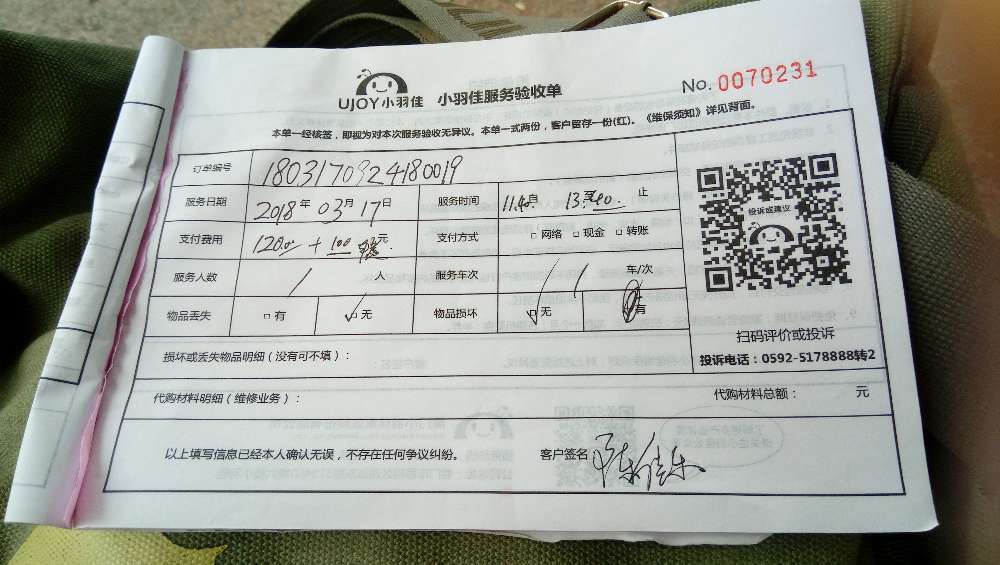 UJOY小羽佳 小羽佳服务验收单 No. 0070231
本单一经核签，即视为对本次服务验收无异议。本单一式两份，客户留存一份(红)。《维保须知》详见背面。
订单编号 1803170924180019
服务日期 2018年03月17日 服务时间 11.40自 13.40.至 止
支付费用 120.00+100 元 支付方式 □网络 □现金 □转账
服务人数 1 人 服务车次 / / 车/次
物品丢失 □有 ☑无 物品损坏 ☑无 有
投诉或建议
扫码评价或投诉
投诉电话：0592-5178888转2
损坏或丢失物品明细（没有可不填）：
代购材料明细（维修业务）： 代购材料总额： 元
以上填写信息已经本人确认无误，不存在任何争议纠纷。 客户签名 陈佳乐